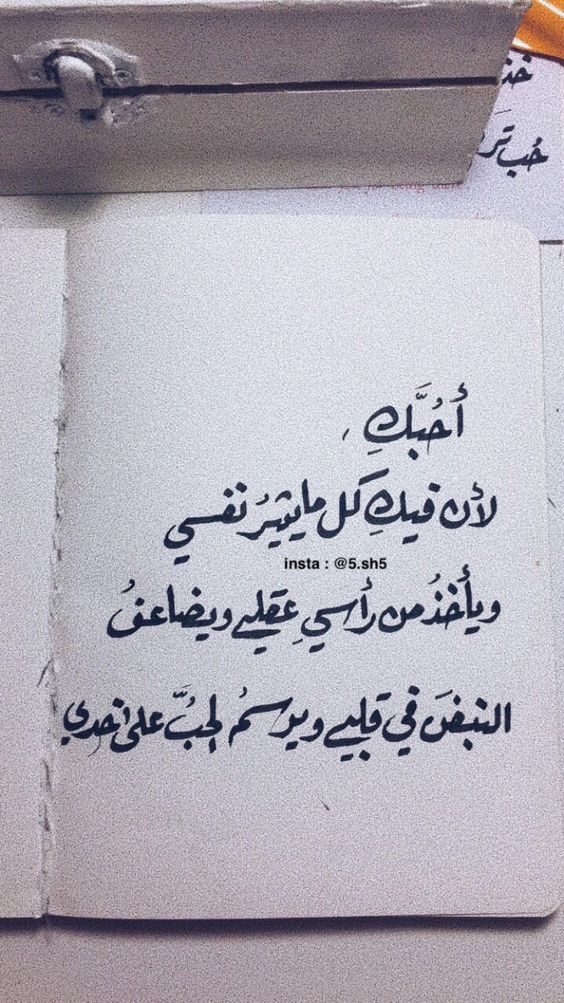 خذ
حُب تر
أُحُبَّكِ ،
لأن فيكِ كل ما يثيرُ نفسي
insta : @5.sh5
ويأخذُ من رأسي عقلي ويضاعفُ
النبضَ في قلبي ويرسمُ الحبَّ على خدي